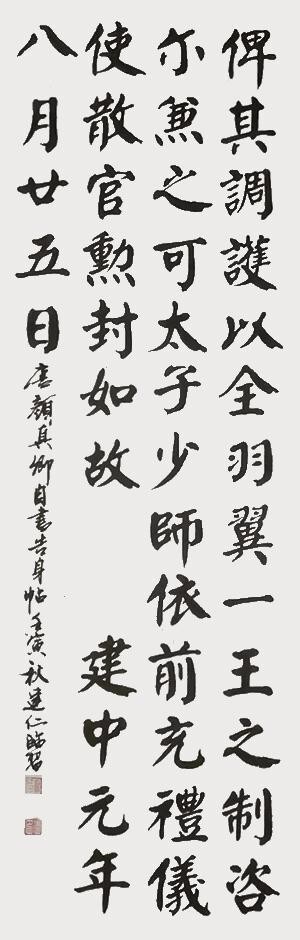 俾其調護以全羽翼一王之制咨
尒兼之可太子少師依前充禮儀
使散官勲封如故 建中元年
八月廿五日
唐顔真卿自書告身帖壬寅秋建仁臨習